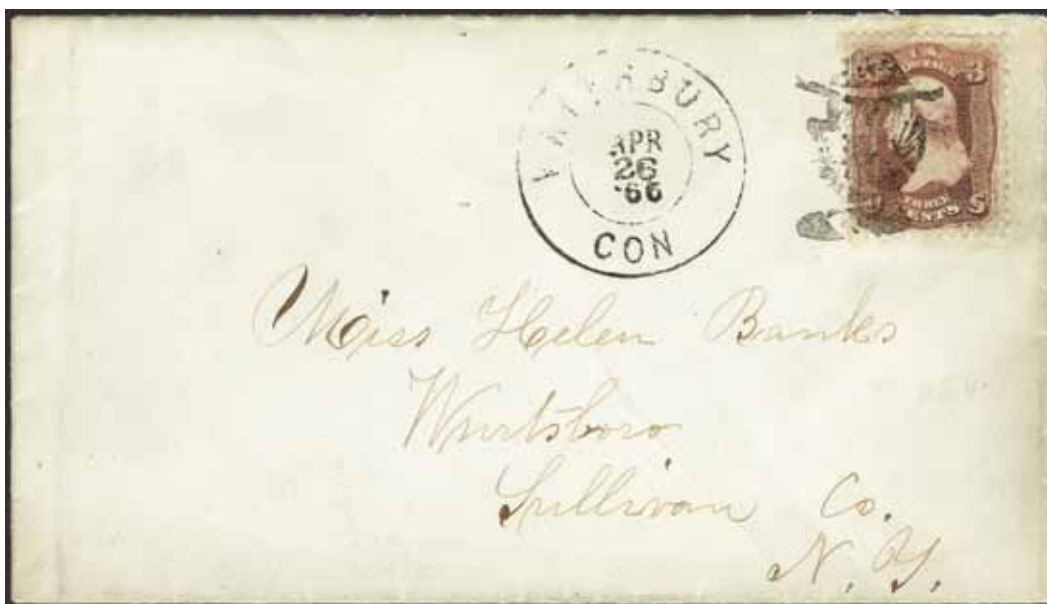 WATERBURY
APR
26
'66
CON
U.S.
POSTAGE
3
THREE
CENTS
Miss Helen Banks
Wurtsboro
Sullivan Co.
N. Y.